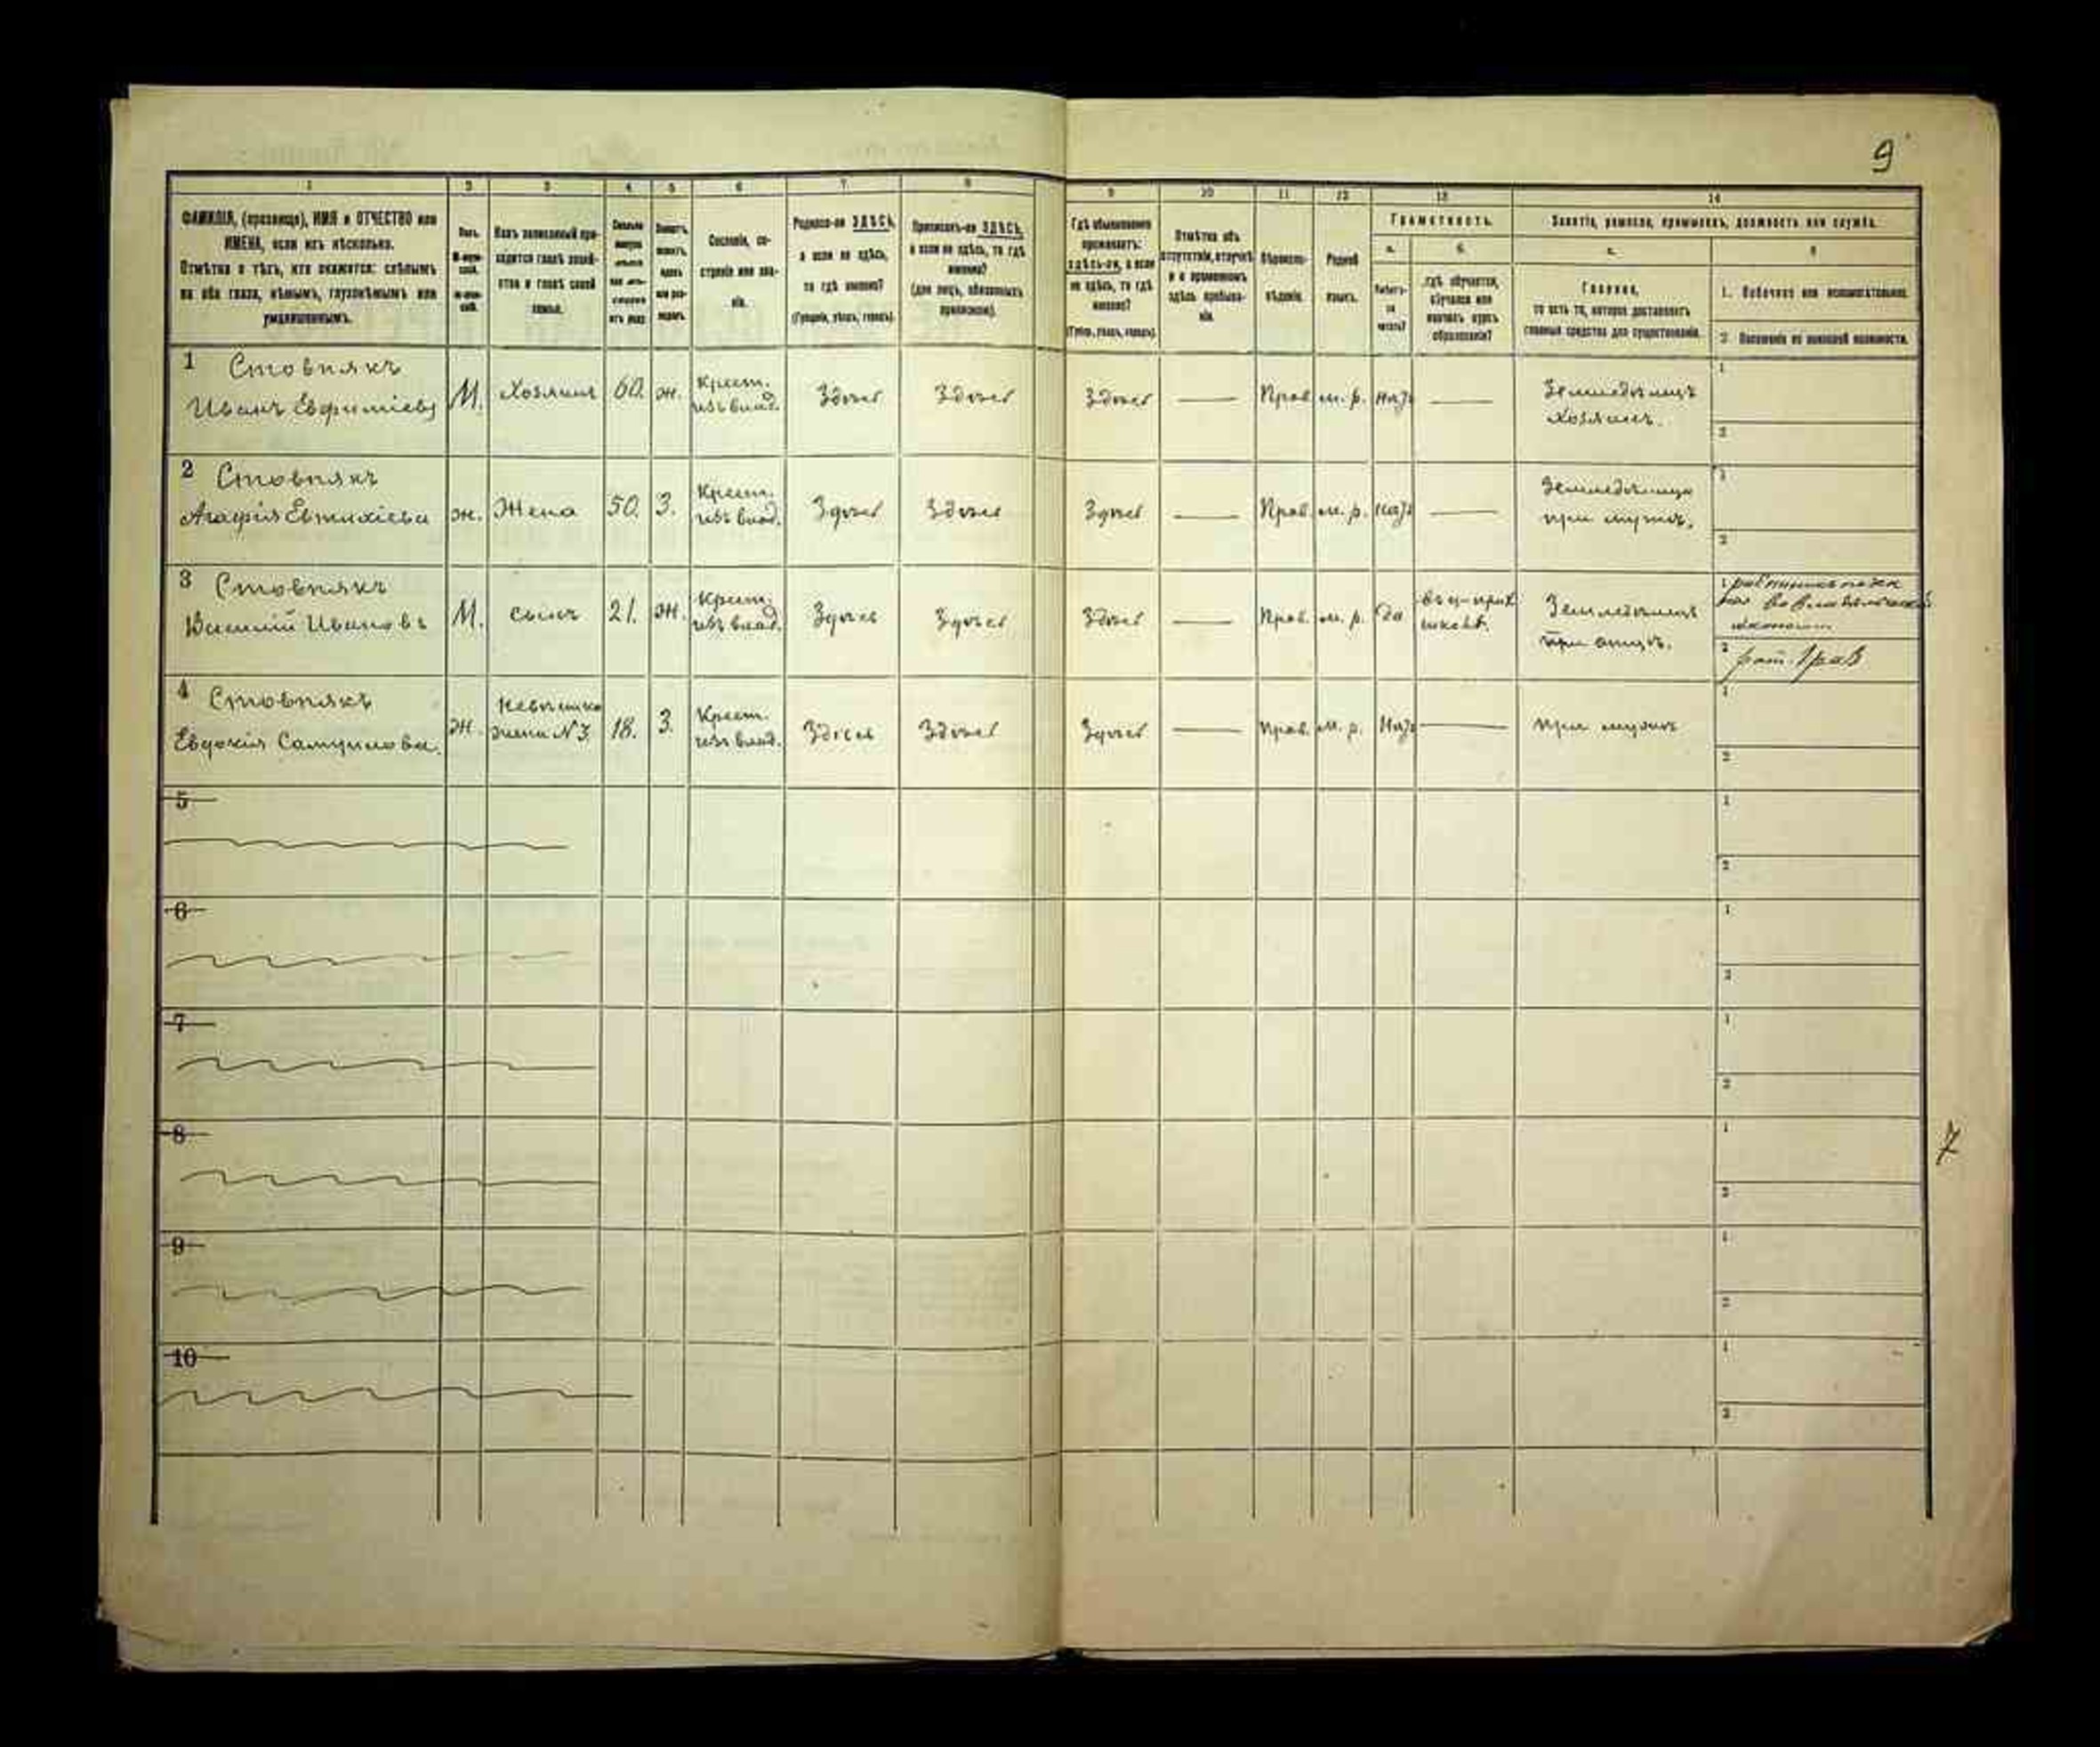 9
1 2 3 4 5 6 7 8 9 10 11 12 13 14
ФАМИЛІЯ, (прозвище), ИМЯ и ОТЧЕСТВО или
ИМЕНА, если ихъ нѣсколько.
Отмѣтка о тѣхъ, кто окажется: слѣпымъ
на оба глаза, нѣмымъ, глухонѣмымъ или
умалишеннымъ.
Полъ.
Какъ записанный при-
ходится главѣ хозяй-
ства и главѣ своей
семьи.
Сословіе, со-
стояніе или зва-
ніе.
Родился-ли ЗДѢСЬ,
а если не здѣсь,
то гдѣ именно?
(Губернія, уѣздъ, городъ).
Приписанъ-ли ЗДѢСЬ,
а если не здѣсь, то гдѣ
именно?
(для лицъ, обязанныхъ
припискою).
Гдѣ обыкновенно
проживаетъ:
здѣсь-ли, а если
не здѣсь, то гдѣ
именно?
(Губер., уѣздъ, городъ).
Отмѣтка объ
отсутствіи, отлучкѣ
и о временномъ
здѣсь пребыва-
ніи.
Вѣроиспо-
вѣданіе.
Родной
языкъ.
Грамотность.
а.
Умѣетъ-
ли
читать?
б.
гдѣ обучается,
обучался или
кончилъ курсъ
образованія?
Занятіе, ремесло, промыселъ, должность или служба.
а.
Главное,
то есть то, которое доставляетъ
главныя средства для существованія.
б
1. Побочное или вспомогательное.
2. Положеніе по воинской повинности.
1 Стовпякъ
Иванъ Евфиміевъ М. Хозяинъ 60. ж. Крест. изъ влад. Здѣсь Здѣсь Здѣсь — Прав. м. р. Нѣтъ — Земледѣлецъ
хозяинъ.
1
2
2 Стовпякъ
Агафія Евтихіева ж. Жена 50. З. Крест. изъ влад. Здѣсь Здѣсь Здѣсь — Прав. м. р. Нѣтъ —
при мужѣ.
1
2
3 Стовпякъ
Василій Ивановъ М. сынъ 21. ж. Крест. изъ влад. Здѣсь Здѣсь Здѣсь — Прав. м. р. да школѣ. Земледѣлецъ
при отцѣ.
1
2
4 Стовпякъ
Евдокія Самуилова. ж. невѣстка жена №3. 18. З. Крест. изъ влад. Здѣсь Здѣсь Здѣсь — Прав. м. р. Нѣтъ — при мужѣ
1
2
5
1
2
6
1
2
7
1
2
8
1
7
2
9
1
2
10
1
2